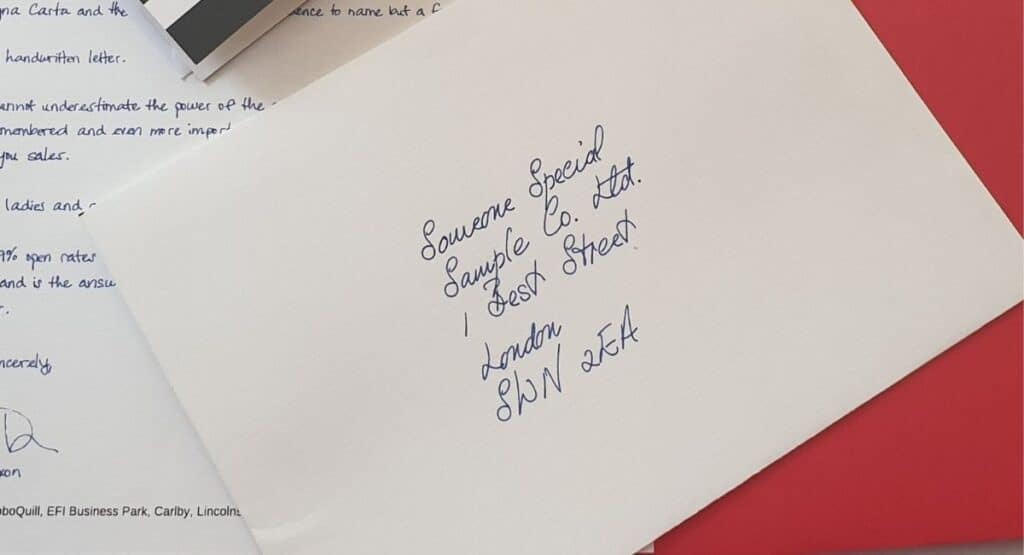 na Carta and the
ence to name but a f
handwritten letter.
annot underestimate the power of the
membered and even more impor
you sales.
ladies and
9% open rates
and is the answ
ncerely,
xon
boQuill, EFI Business Park, Carlby, Lincolns
Someone Special
Sample Co. Ltd.
1 Best Street
London
SWN 2EA